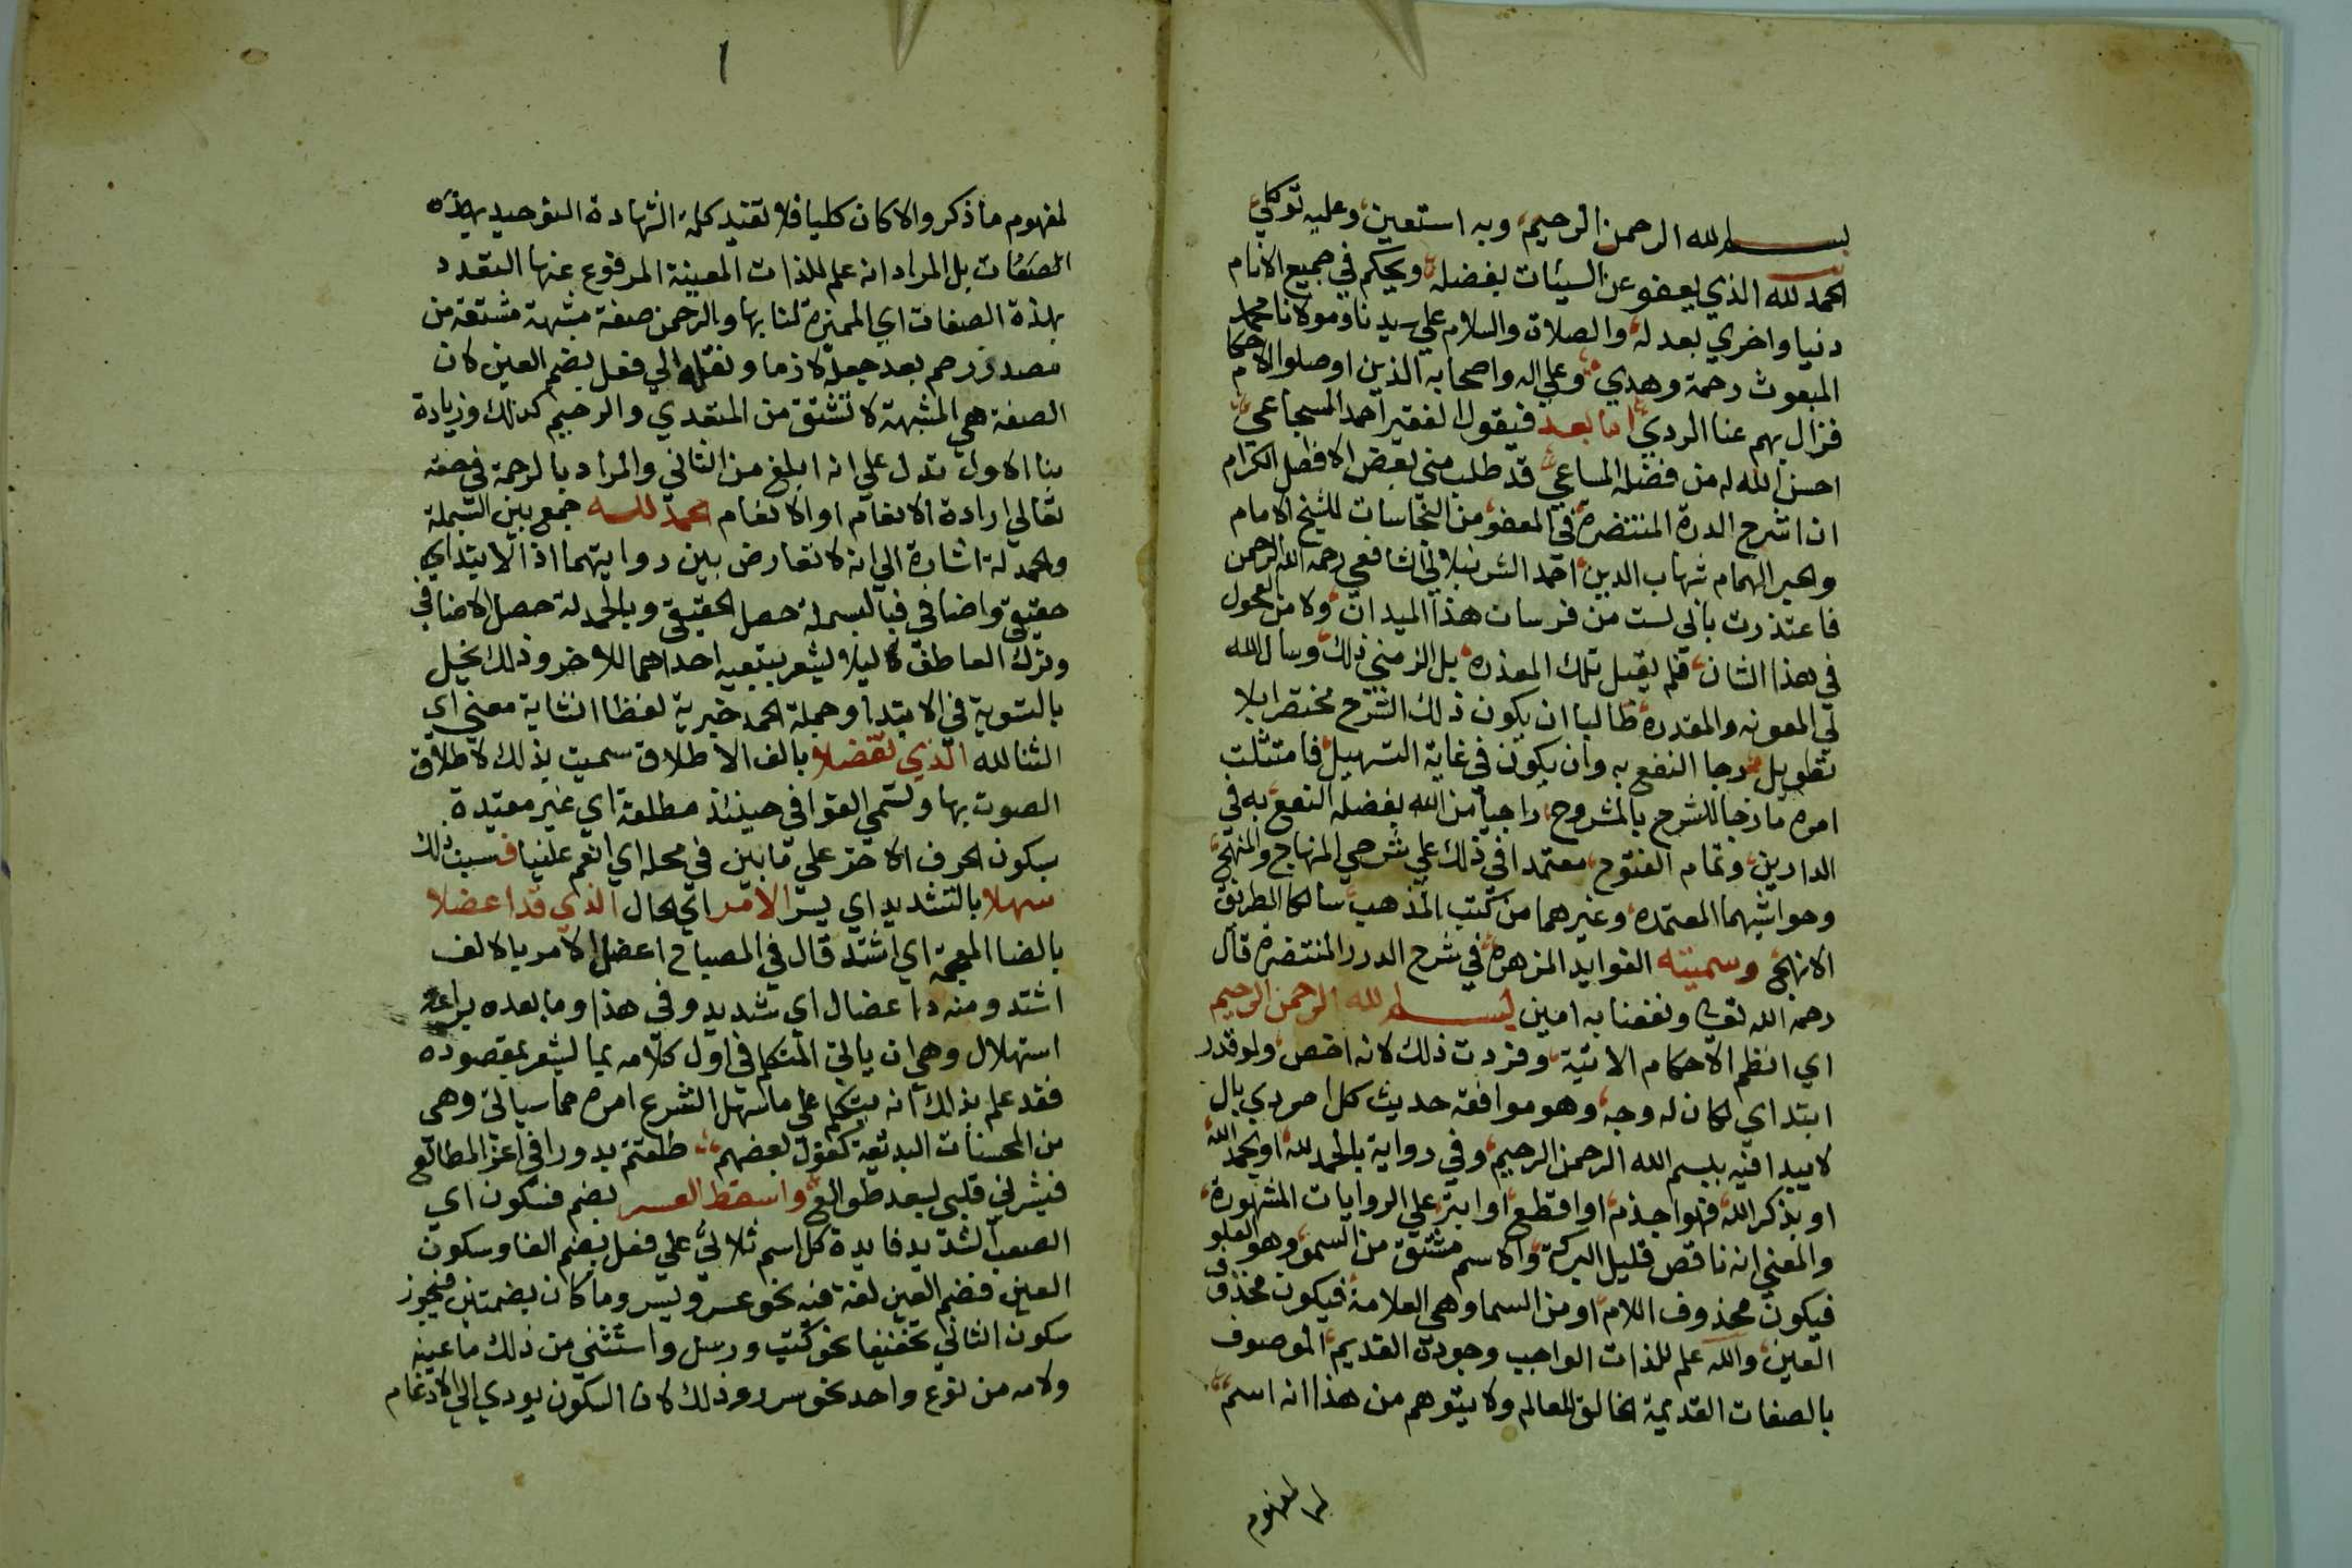 بسم الله الرحمن الرحيم وبه استعين وعليه توكلي
الحمد لله الذي يعفو عن السيئات بفضله ويحكم في جميع الانام
دنيا واخري بعدله والصلاة والسلام علي سيدنا ومولانا محمد
المبعوث رحمة وهدي وعلي اله واصحابه الذين اوصلوا الاحكام
فزال بهم عنا الردي اما بعد فيقول الفقير احمد السجاعي
احسن الله له من فضله المساعي قد طلب مني بعض الافضل الكرام
ان اشرح الدرة المنتضرة في المعفو من النجاسات للشيخ الامام
والحبر الهمام شهاب الدين احمد الشرنبلالي الشافعي رحمه الله الرحمن
فاعتذرت باني لست من فرسان هذا الميدان ولا من الفحول
في هذا الشان فلم يقبل تلك المعذره بل الزمني ذلك وسال الله
لي المعونه والمقدرة طالبا ان يكون ذلك الشرح مختصرا بلا
تطويل رجا النفع به وان يكون في غاية التسهيل فامتثلت
امره مازجا للشرح بالمشروح راجيا من الله بفضله النفع به في
الدارين وتمام الفتوح معتمدا في ذلك علي شرحي المنهاج والمنهج
وحواشيهما المعتمده وغيرهما من كتب المذهب سالكا الطريق
الانهج وسميته الفوايد المزهرة في شرح الدرر المنتضره قال
رحمه الله تعالى ونفعنا به امين بسم الله الرحمن الرحيم
اي انظم الاحكام الاتية وفزدت ذلك لانه اخص ولو قدر
ابتداي لكان له وجه وهو موافقه حديث كل امر ذي بال
لا يبدا فيه ببسم الله الرحمن الرحيم وفي رواية بالحمد لله او بحمد الله
او بذكر الله فهو اجذم او اقطع او ابتر علي الروايات المشهورة
والمعني انه ناقص قليل البركة والاسم مشتق من السمو وهو العلو
فيكون محذوف اللام او من السما وهي العلامة فيكون محذوف
العين والله علم للذات الواجب وجوده القديم الموصوف
بالصفات القديمة الخالق للعالم ولا يتوهم من هذا انه اسم
لمفهوم
لمفهوم ما ذكر والا كان كليا فلا تفيد كلمة الشهادة التوحيد بهذه
الصفات بل المراد انه علم للذات المعينة المرفوع عنها التعدد
بهذه الصفات اي المميزة لنا بها والرحمن صفة مشبهة مشتقة من
مصدر رحم بعد جعله لازما ونقله الي فعل بضم العين لان
الصفة هي المشبهة لا تشتق من المتعدي والرحيم كذلك وزيادة
بنا الاول تدل علي انه ابلغ من الثاني والمراد بالرحمة في حقه
تعالي ارادة الانعام او الانعام الحمد لله جمع بين البسملة
والحمدلة اشارة الي انه لا تعارض بين روايتهما اذ الابتداي
حقيقي واضافي فبالبسملة حصل الحقيقي وبالحمدلة حصل الاضافي
وترك العاطف ليلا يشعر بتبعيه احداهما للاخر وذلك يخل
بالتسوية في الابتدا وجملة الحمد خبرية لفظا انشاية معني اي
الثنا لله الذي تفضلا بالف الاطلاق سميت بذلك لاطلاق
الصوت بها وتسمي القوافي حينئذ مطلقة اي غير مقيدة
بسكون الحرف الاخر علي ما بين في محله اي انعم علينا فسبب ذلك
سهلا بالتشديد اي يسر الامر اي الحال الذي قد اعضلا
بالضا المعجمة اي اشتد قال في المصباح اعضل الامر بالالف
اشتد ومنه دا عضال اي شديد وفي هذا وما بعده براعة
استهلال وهي ان ياتي المتكلم في اول كلامه بما يشعر بمقصوده
فقد علم بذلك انه يتكلم علي ما سهل الشرع امره مما سياتي وهي
من المحسنات البديعية كقول بعضهم طلعتم بدورا في اعز المطالع
فبشرني قلبي بسعد طوالع واسقط العسر بضم فسكون اي
الصعب الشديد فايدة كل اسم ثلاثي علي فعل بضم الفا وسكون
العين فضم العين لغة فيه نحو عسر ويسر وما كان بضمتين فيجوز
سكون الثاني تخفيفا نحو كتب ورسل واستثني من ذلك ما عينه
ولامه من نوع واحد نحو سرر وذلك لان السكون يودي الي الادغام